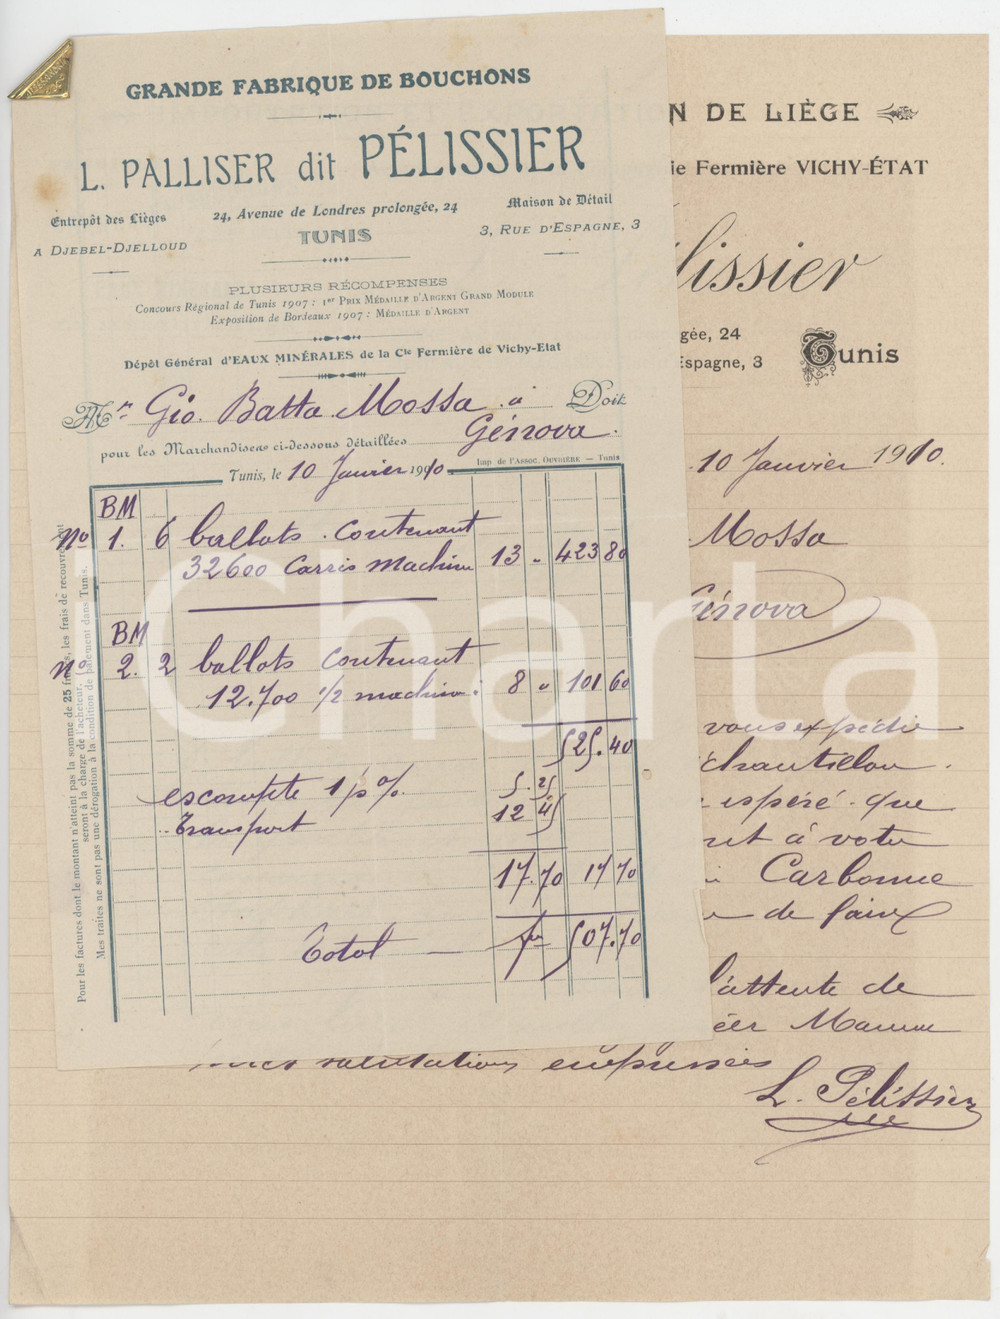 GRANDE FABRIQUE DE BOUCHONS
L. PALLISER dit PÉLISSIER
Entrepôt des Lièges
A DJEBEL-DJELLOUD
24, Avenue de Londres prolongée, 24
TUNIS
Maison de Détail
3, RUE D'ESPAGNE, 3
PLUSIEURS RÉCOMPENSES
Concours Régional de Tunis 1907 : 1er PRIX MÉDAILLE D'ARGENT GRAND MODULE
Exposition de Bordeaux 1907 : MÉDAILLE D'ARGENT
Dépôt Général d'EAUX MINÉRALES de la Cie Fermière de Vichy-Etat
Mr Gio. Batta Mossa à Doit
Génova.
pour les Marchandises ci-dessous détaillées
Imp de l'Assoc. OUVRIÈRE — Tunis
Tunis, le 10 Janvier 1910
BM
No 1. 6 ballots contenant
32600 Carris machine 13 " 423 80
BM
No 2. 2 ballots contenant
12.700 1/2 machine : 8 " 101 60
525.40
escompte 1 p% 5.25
Transport 12 45
17.70 17 70
Total — fr 507.70
Pour les factures dont le montant n'atteint pas la somme de 25 francs, les frais de recouvrement
seront à la charge de l'acheteur.
Mes traites ne sont pas une dérogation à la condition de paiement dans Tunis.
N DE LIÈGE
ie Fermière VICHY-ÉTAT
lissier
gée, 24
Espagne, 3
Tunis
10 Janvier 1910.
Mossa
Génova
vous expédie
échantillon.
espéré que
ont à votre
Carbonne
de faire
l'attente de
Mames salutations empressées
L. Pélissier
Charta